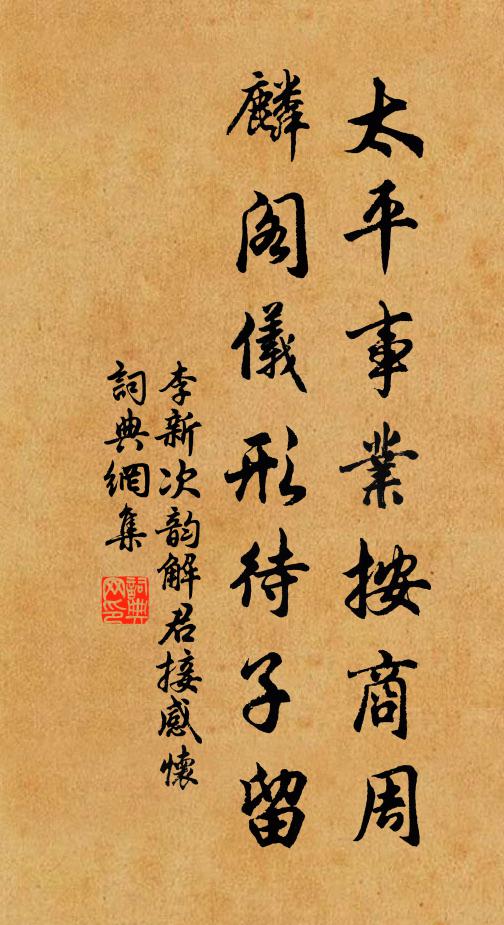 太平事業按商周
麟閣儀形待子留
李新次韵解君接感懷
詞典網集
詞典網印